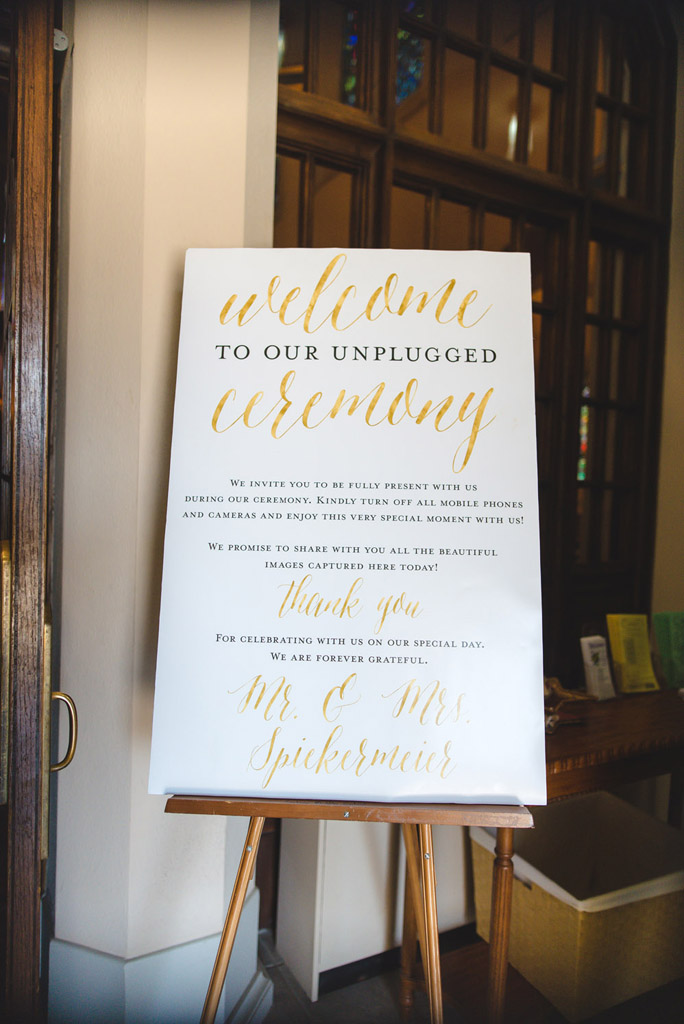 welcome
TO OUR UNPLUGGED
ceremony
WE INVITE YOU TO BE FULLY PRESENT WITH US
DURING OUR CEREMONY. KINDLY TURN OFF ALL MOBILE PHONES
AND CAMERAS AND ENJOY THIS VERY SPECIAL MOMENT WITH US!
WE PROMISE TO SHARE WITH YOU ALL THE BEAUTIFUL
IMAGES CAPTURED HERE TODAY!
thank you
FOR CELEBRATING WITH US ON OUR SPECIAL DAY.
WE ARE FOREVER GRATEFUL.
Mr. & Mrs.
Spiekermeier